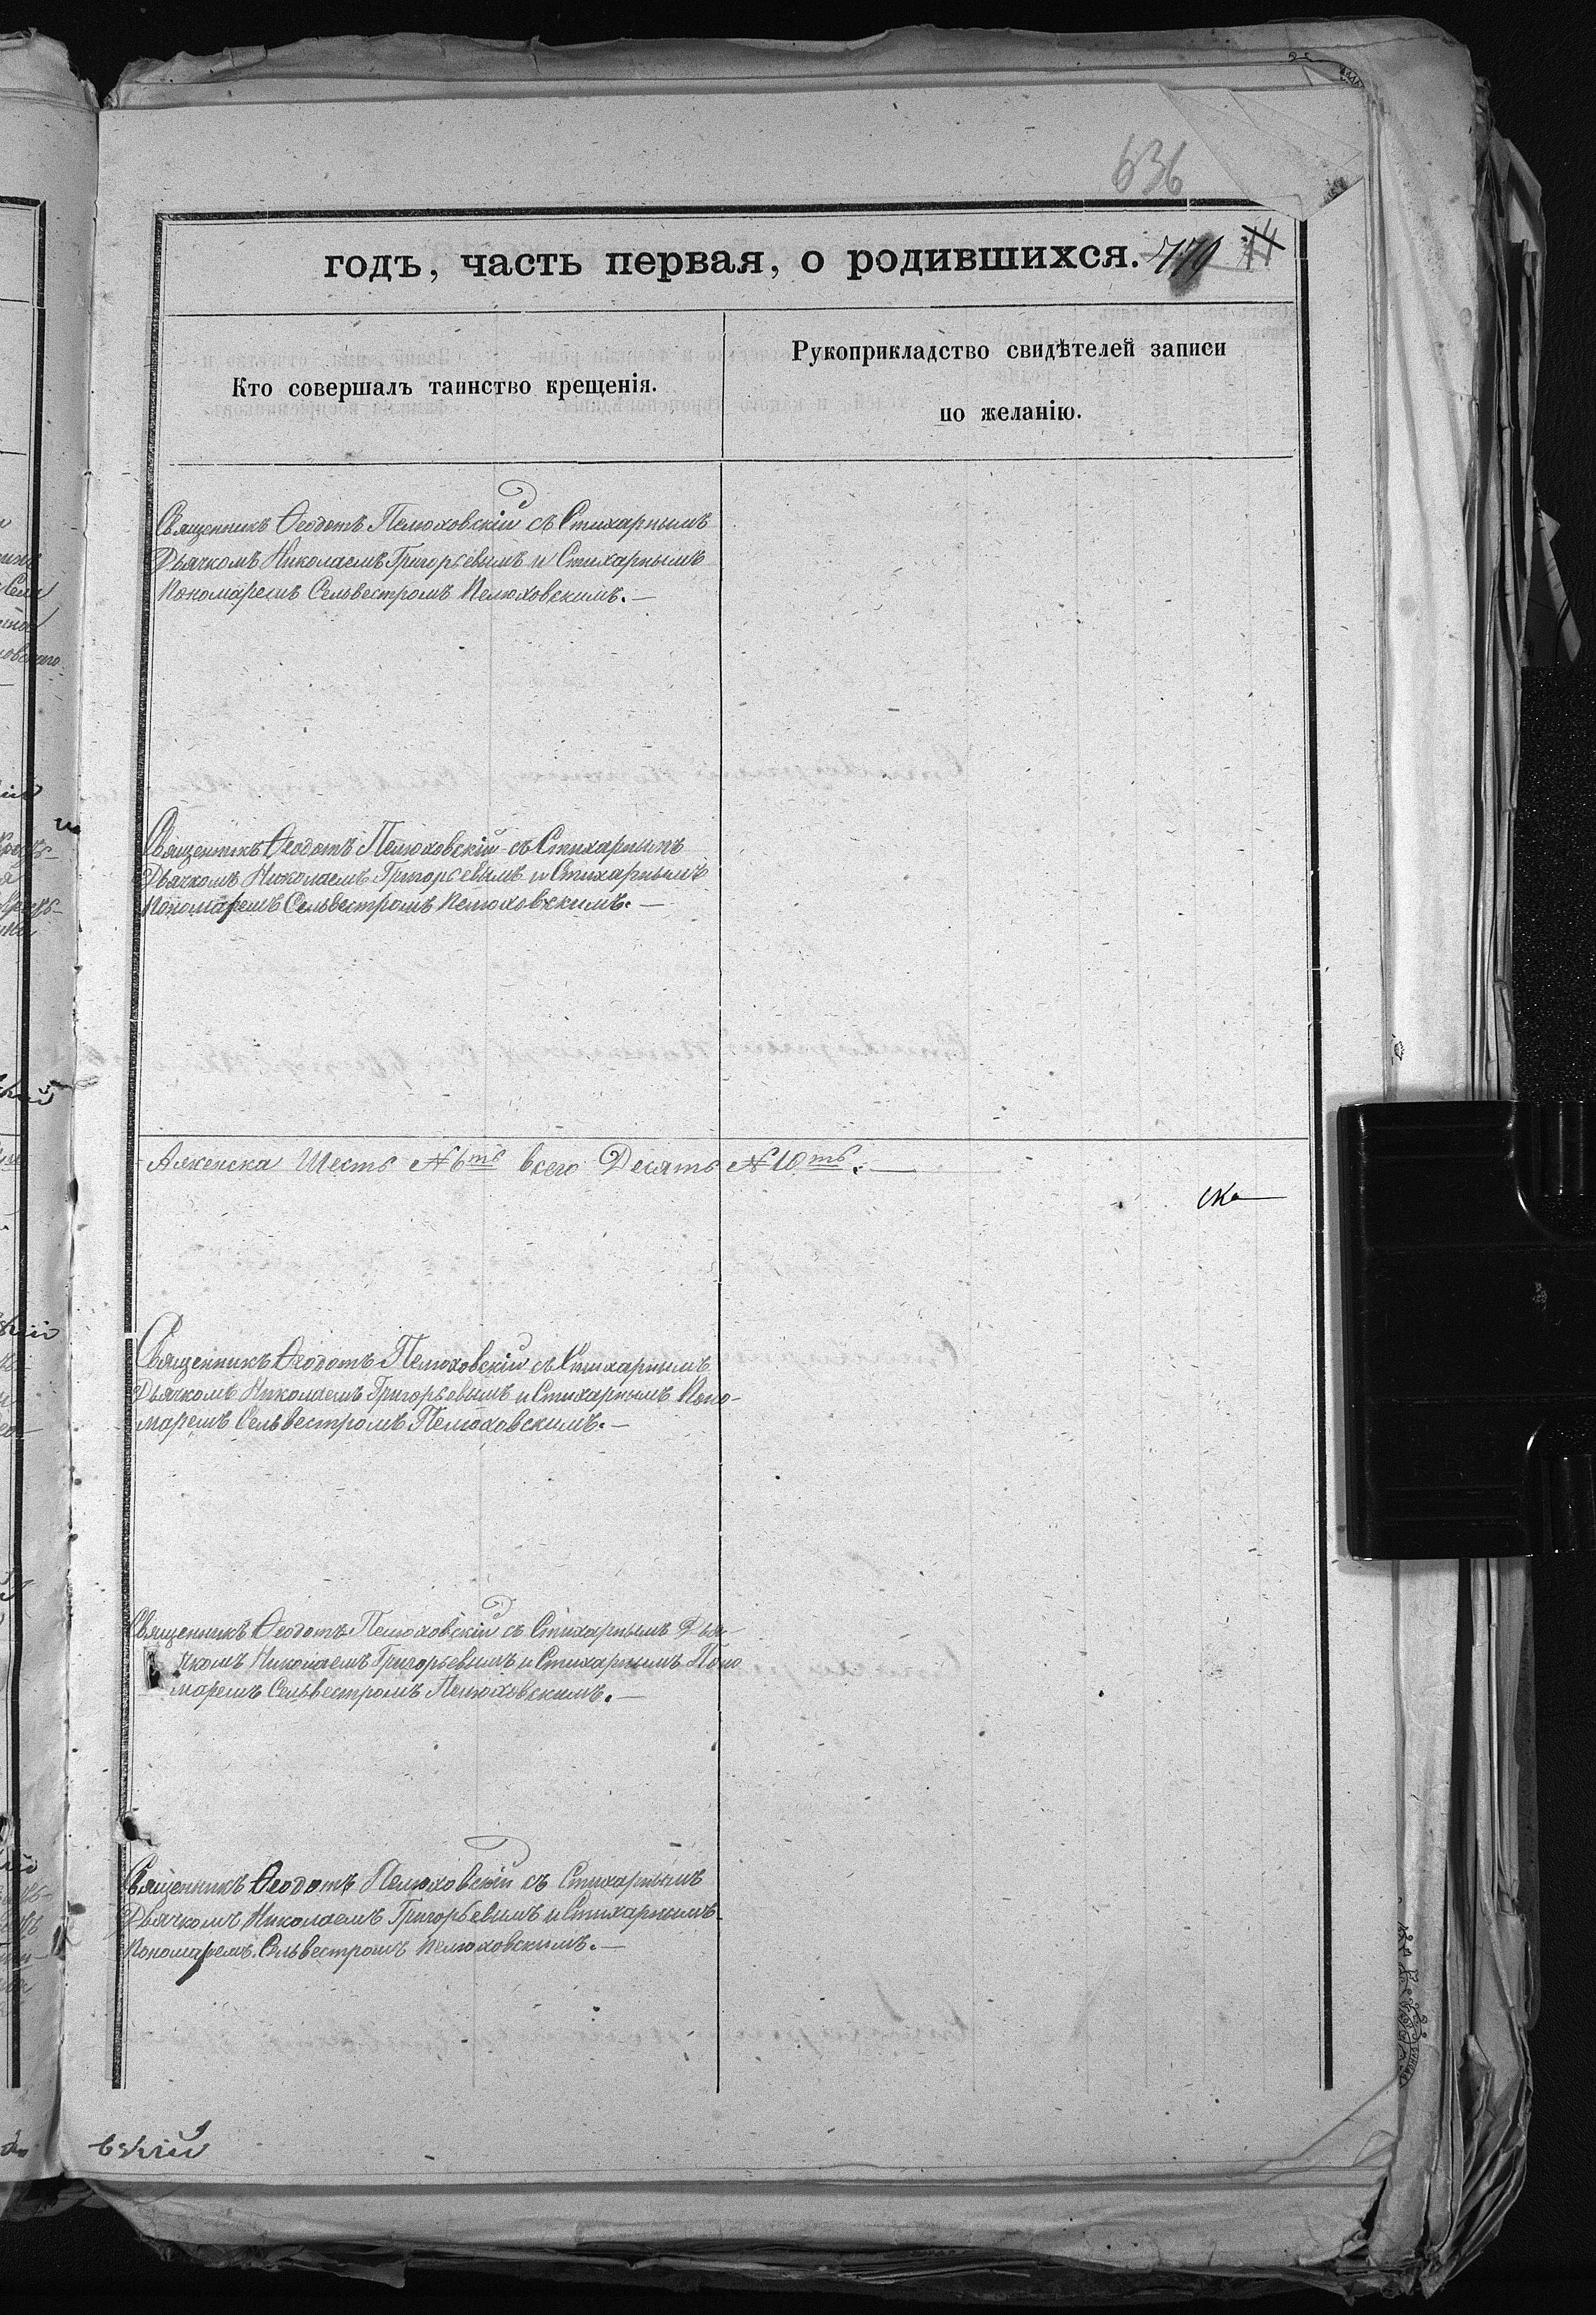 636
годъ, часть первая, о родившихся. 779
Кто совершалъ таинство крещенія.
Рукоприкладство свидѣтелей записи
по желанію.
Священникъ Ѳеодотъ Пелюховскій съ Стихарнымъ
Дьячкомъ Николаемъ Григорьевымъ и Стихарнымъ
Пономаремъ Сельвестромъ Пелюховскимъ.—
Священникъ Ѳеодотъ Пелюховскій съ Стихарнымъ
Дьячкомъ Николаемъ Григорьевымъ и Стихарнымъ
Пономаремъ Сельвестромъ Пелюховскимъ.—
Аженска Шесть №6ть всего Десять №10ть.—
Священникъ Ѳеодотъ Пелюховскій съ Стихарнымъ
Дьячкомъ Николаемъ Григорьевымъ и Стихарнымъ Поно-
маремъ Сельвестромъ Пелюховскимъ.—
Священникъ Ѳеодотъ Пелюховскій съ Стихарнымъ Дья-
чкомъ Николаемъ Григорьевымъ и Стихарнымъ Поно
маремъ Сельвестромъ Пелюховскимъ.—
Священникъ Ѳеодотъ Пелюховскій съ Стихарнымъ
Дьячкомъ Николаемъ Григорьевымъ и Стихарнымъ
Пономаремъ Сельвестромъ Пелюховскимъ.—
вскій